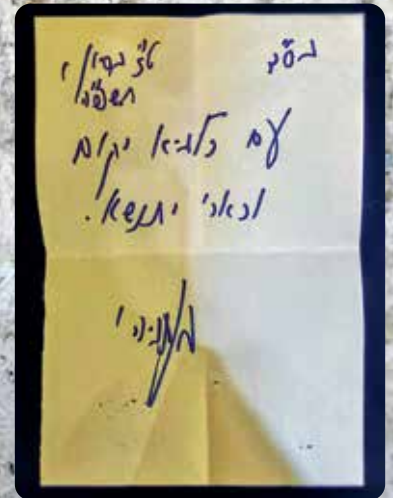 בס"ד ט"ז בסיון
תשפ"ה
עם כלביא יקום
וכארי יתנשא.